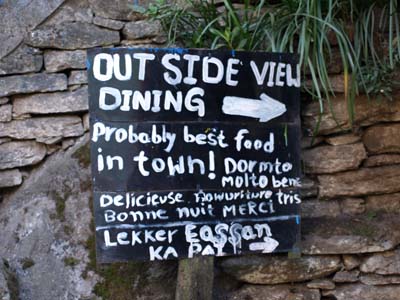 OUT SIDE VIEW
DINING
Probably best food
in town! Dormto
MOLTO bene
Delicieuse nowuriture tris
Bonne nuit MERCI
Lekker Eassan
KA